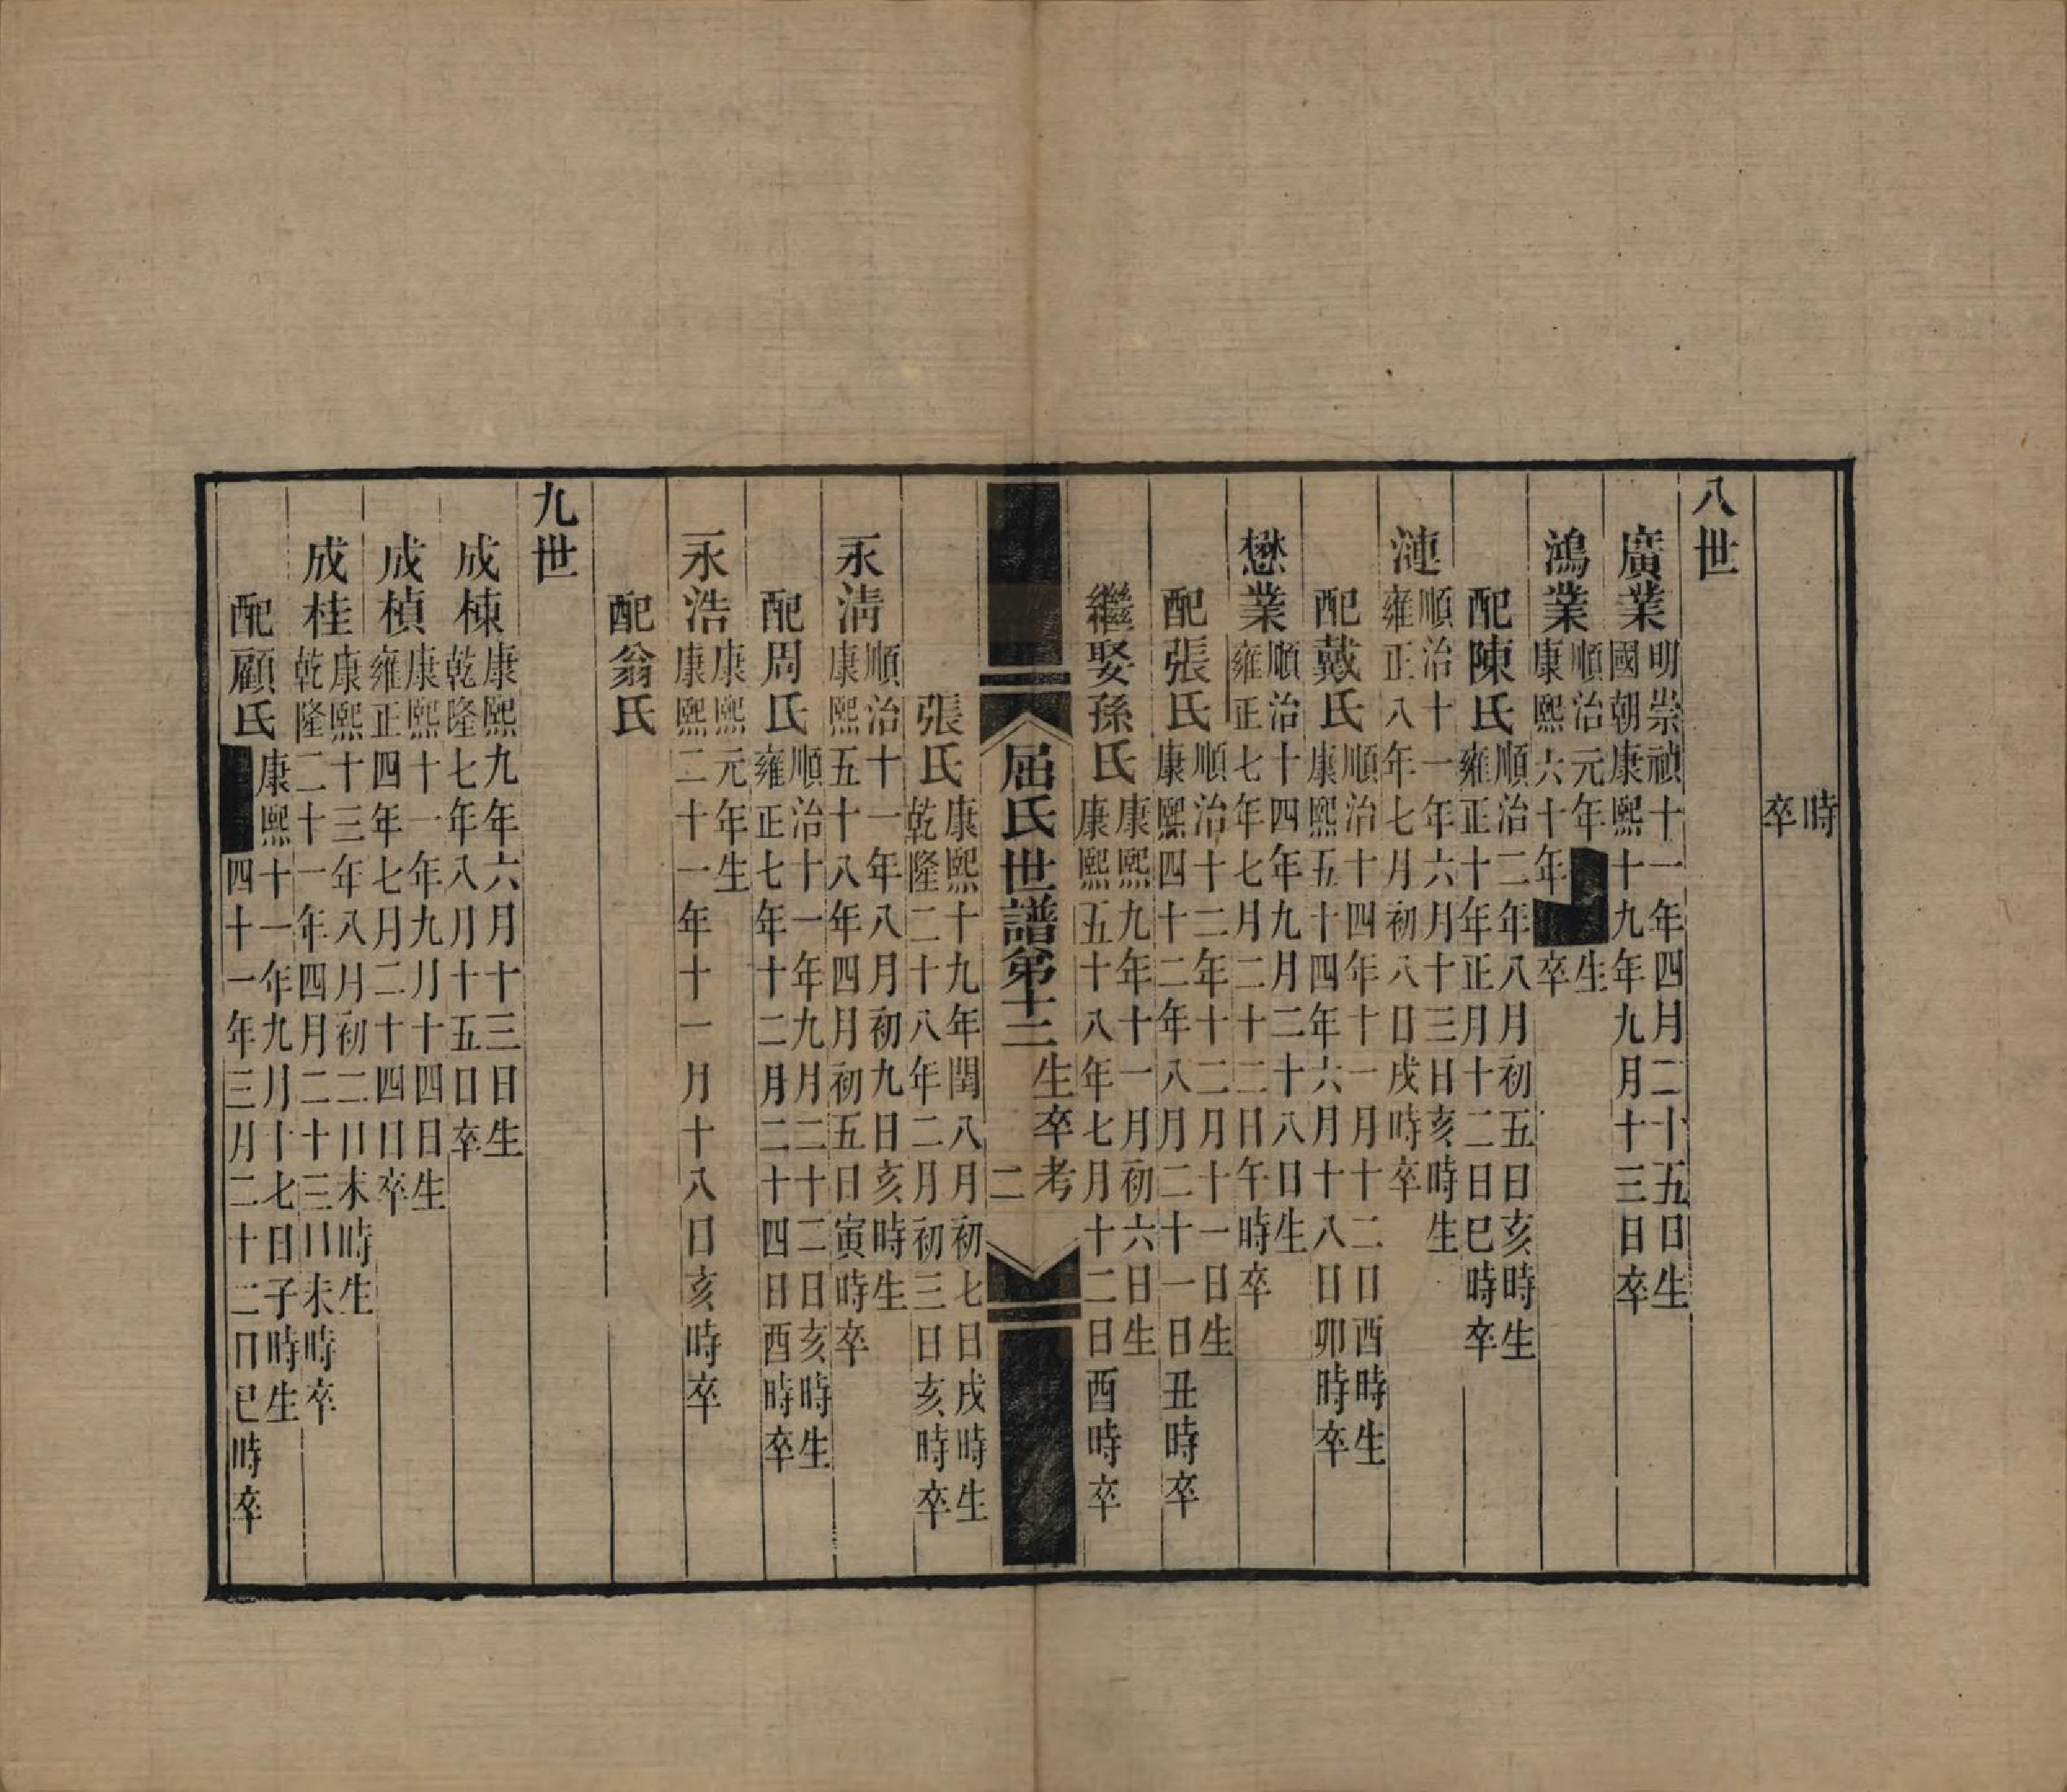 時
卒
八世
廣業
明崇禎十一年四月二十五日生
國朝康熙十九年九月十三日卒
鴻業
順治元年生
康熙六十年卒
配陳氏
順治二年八月初五日亥時生
雍正十年正月十二日巳時卒
漣
順治十一年六月十三日亥時生
雍正八年七月初八日戌時卒
配戴氏
順治十四年十一月十二日酉時生
康熙五十四年六月十八日卯時卒
懋業
順治十四年九月二十八日生
雍正七年七月二十二日午時卒
配張氏
順治十二年十二月十一日生
康熙四十二年八月二十一日丑時卒
繼娶孫氏
康熙九年十一月初六日生
康熙五十八年七月十二日酉時卒
屈氏世譜第十二
生卒考
二
張氏
康熙十九年閏八月初七日戌時生
乾隆二十八年二月初三日亥時卒
永淸
順治十一年八月初九日亥時生
康熙五十八年四月初五日寅時卒
配周氏
順治十一年九月二十二日亥時生
雍正七年十二月二十四日酉時卒
永浩
康熙元年生
康熙二十一年十一月十八日亥時卒
配翁氏
九世
成棟
康熙九年六月十三日生
乾隆七年八月十五日卒
成楨
康熙十一年九月十四日生
雍正四年七月二十四日卒
成桂
康熙十三年八月初二日未時生
乾隆二十一年四月二十三日未時卒
配顧氏
康熙十一年九月十七日子時生
四十一年三月二十二日巳時卒